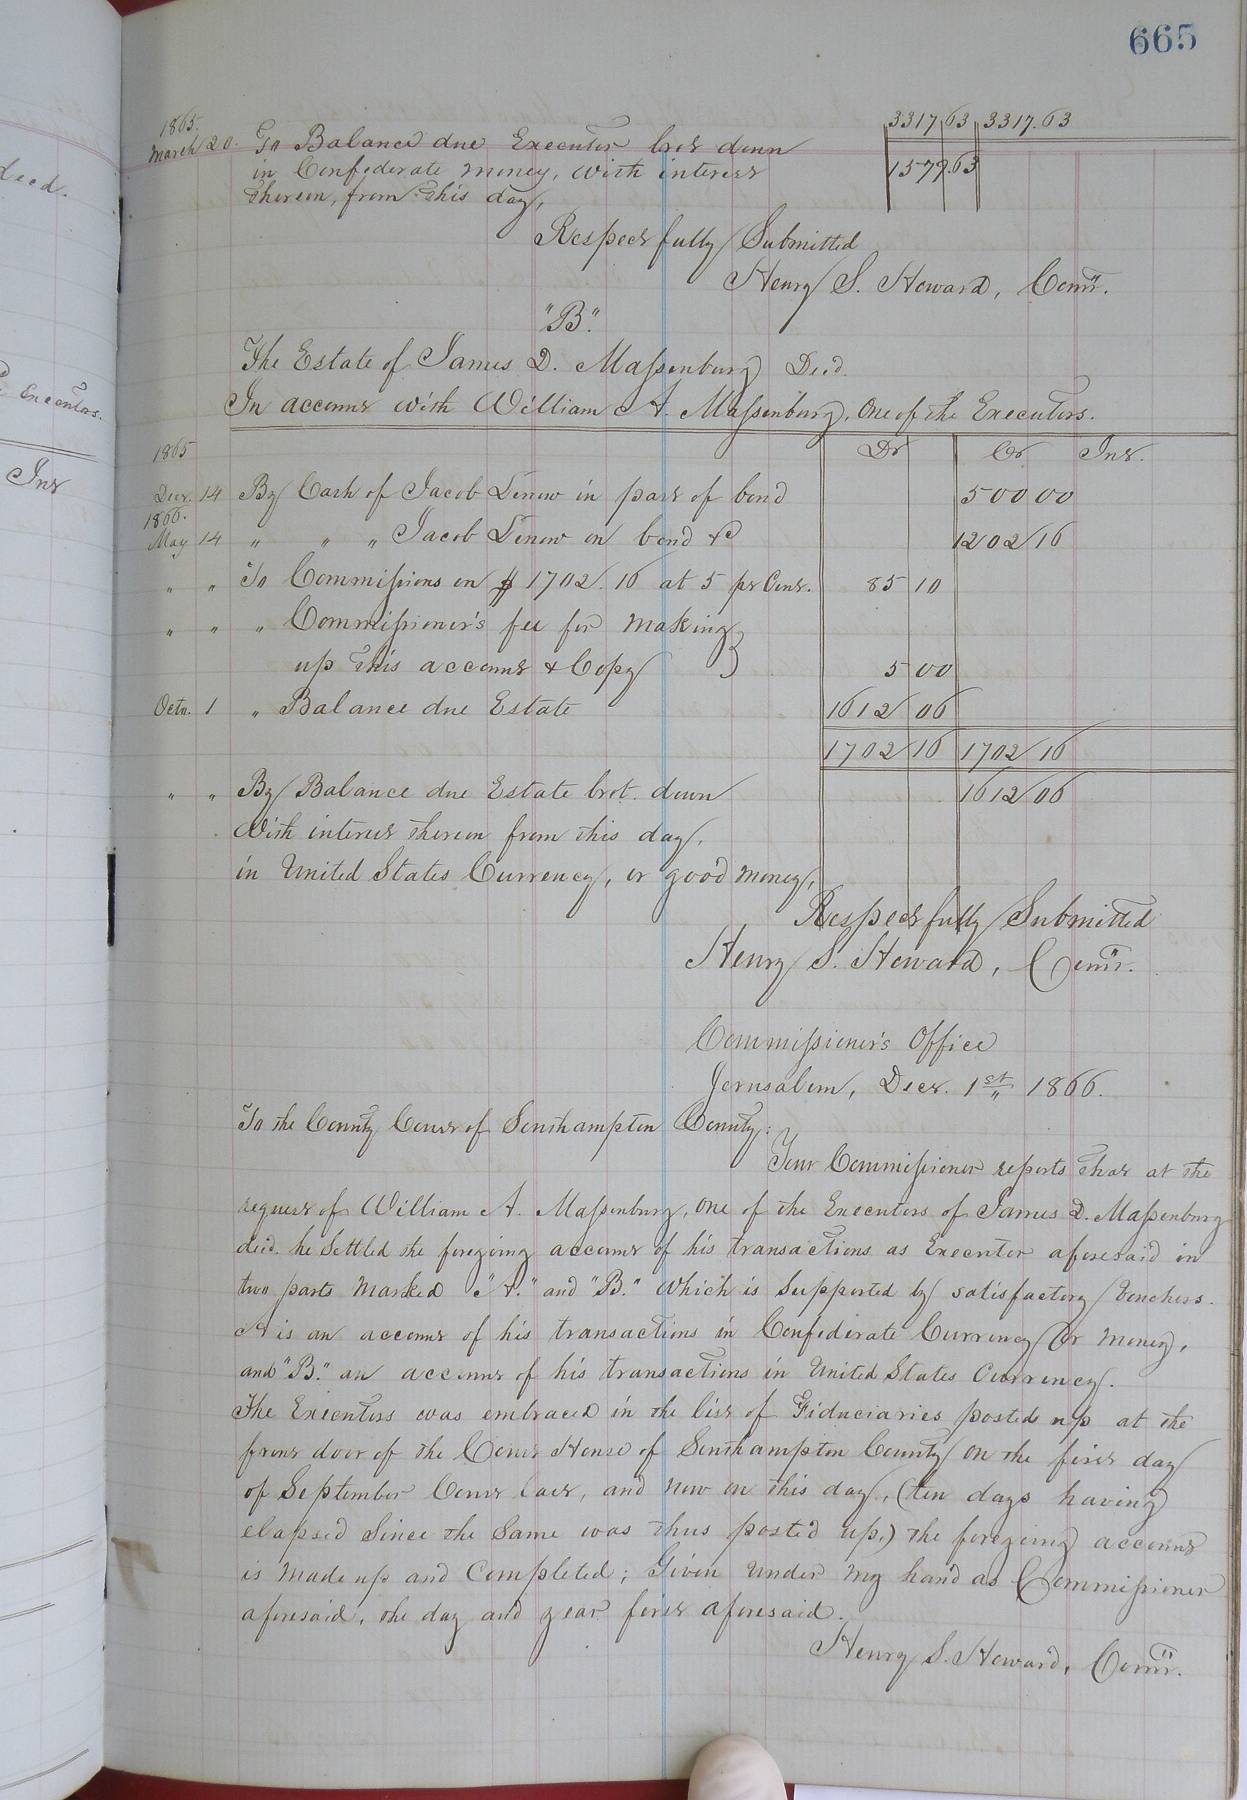 665
3317 63 3317.63
1865.
March 20. To Balance due Executor brot down 1579.63
in Confederate money, with interest
thereon, from this day,
Respectfully Submitted
Henry S. Howard, Comr.
"B."
The Estate of James D. Massenburg Decd.
In account with William A. Massenburg, One of the Executors.
1865 Dr Cr Int.
Decr. 14 By Cash of Jacob Denow in part of bond 500 00
1866.
May 14 " " " Jacob Denow on bond &c 1202 16
" " To Commissions on $1702.16 at 5 pr Cent. 85 10
" " " Commissioner's fee for making
up this account & Copy 5 00
Octo. 1 " Balance due Estate 1612 06
1702 16 1702 16
" " By Balance due Estate brot. down 1612 06
With interest thereon from this day,
in United States Currency, or good money,
Respectfully Submitted
Henry S. Howard, Comr.
Commissioner's Office
Jerusalem, Decr. 1st 1866.
To the County Court of Southampton County:
Your Commissioner reports that at the
request of William A. Massenburg, One of the Executors of James D. Massenburg
decd. he Settled the foregoing account of his transactions as Executor aforesaid in
two parts marked "A." and "B." Which is Supported by satisfactory Vouchers.
A is an account of his transactions in Confederate Currency or money,
and "B." an account of his transactions in United States Currency.
The Executors was embraced in the list of Fiduciaries posted up at the
front door of the Court House of Southampton County on the first day
of September Court last, and now on this day, (ten days having
elapsed Since the Same was thus posted up,) the foregoing account
is made up and Completed; Given under my hand as Commissioner
aforesaid, the day and year first aforesaid.
Henry S. Howard, Comr.
decd.
Executors.
Int